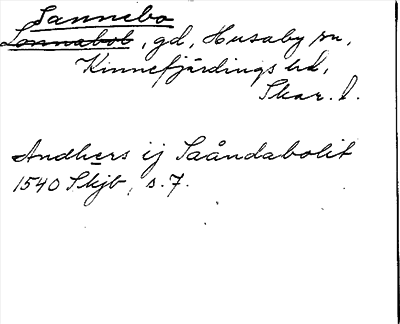 Sannebo
Lonnabol, gd, Husaby sn,
Kinnefjärdings hd,
Skar. l.
Andhers ij Saåndabolit
1540 Skjb, s. 7.